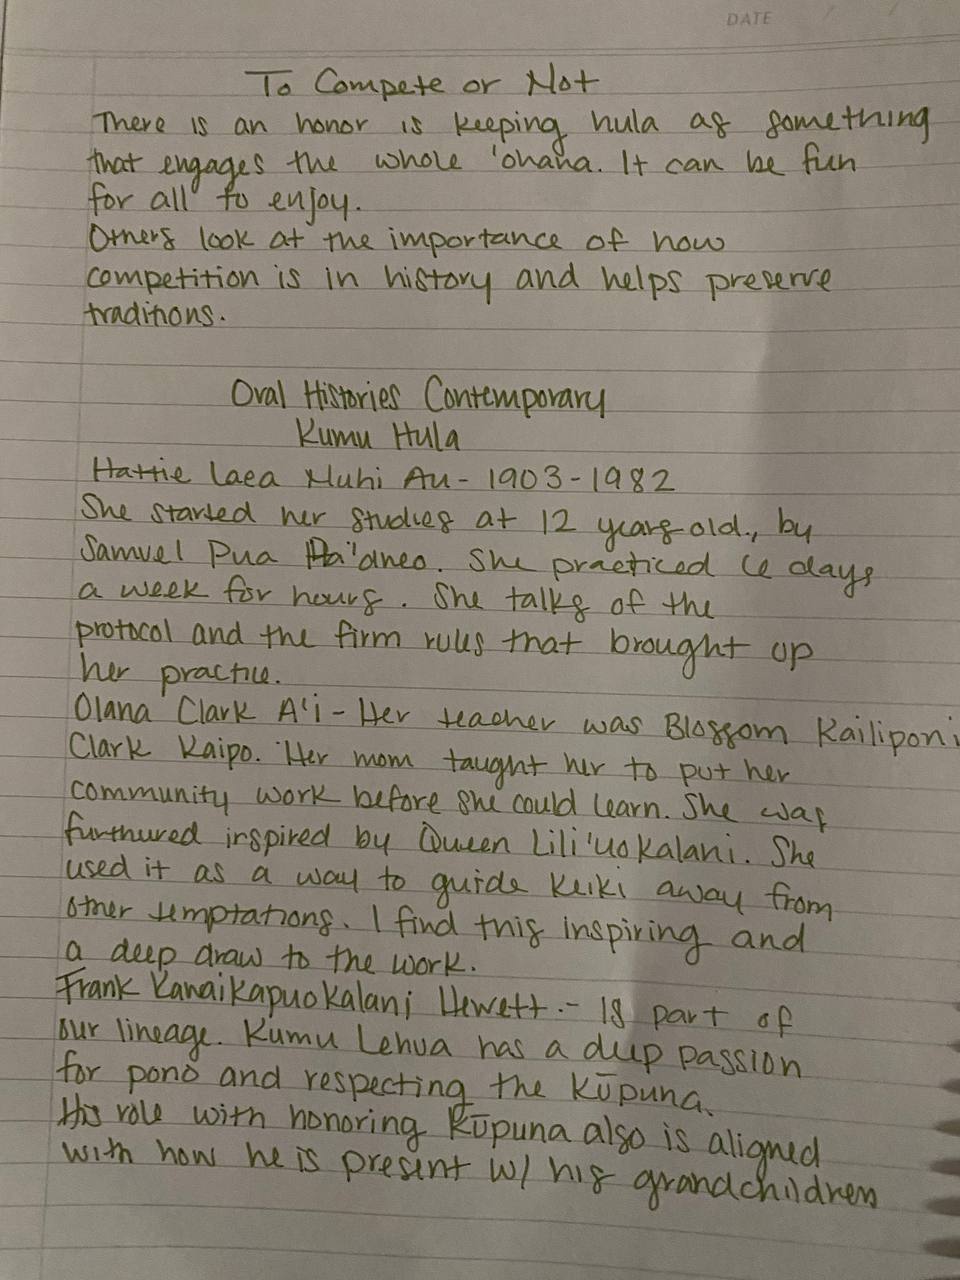 DATE / /
To Compete or Not
There is an honor is keeping hula as something
that engages the whole 'ohana. It can be fun
for all to enjoy.
Others look at the importance of how
competition is in history and helps preserve
traditions.
Oral Histories Contemporary
Kumu Hula
Hattie Laea Nuhi Au - 1903-1982
She started her studies at 12 years old., by
Samuel Pua Ha'aheo. She practiced 6 days
a week for hours. She talks of the
protocol and the firm rules that brought up
her practice.
Olana Clark A'i - Her teacher was Blossom Kailiponi
Clark Kaipo. Her mom taught her to put her
community work before she could learn. She was
furthured inspired by Queen Lili'uokalani. She
used it as a way to guide Keiki away from
other temptations. I find this inspiring and
a deep draw to the work.
Frank Kawaikapuokalani Hewett. - Is part of
our lineage. Kumu Lehua has a deep passion
for pono and respecting the Kūpuna.
His role with honoring Kūpuna also is aligned
with how he is present w/ his grandchildren